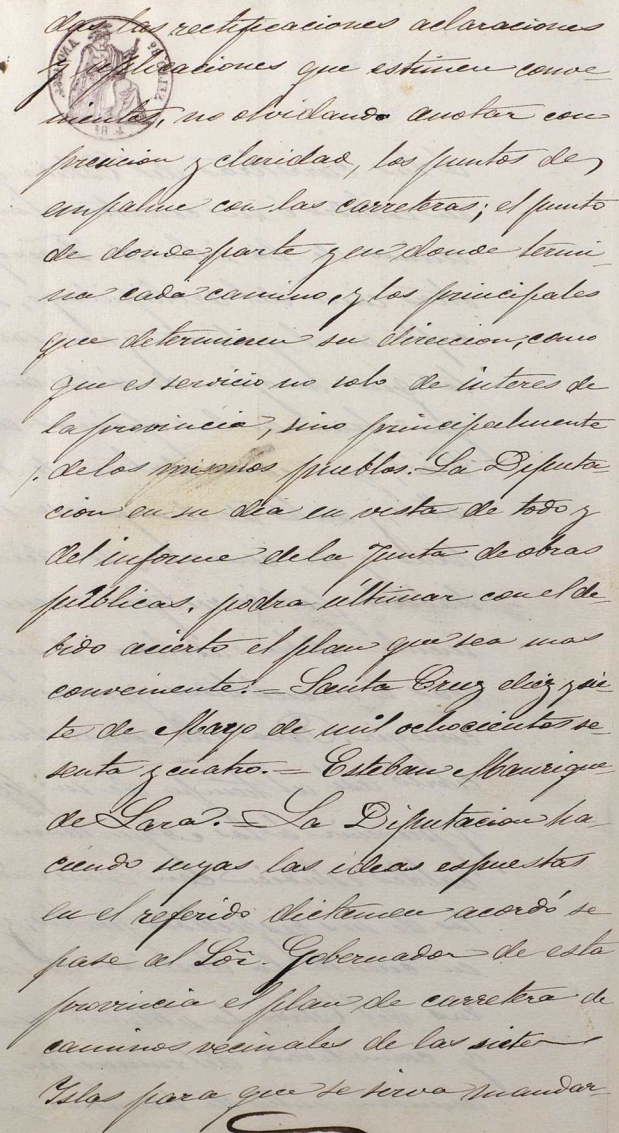 das las rectificaciones aclaraciones
y esplicaciones que estimen conve-
nientes, no olvidando anotar con
precicion y claridad, los puntos de
enpalme con las carreteras; el punto
de donde parte y en donde termi-
na cada camino, y los principales
que determinen su direccion, como
que es servicio no solo de interes de
la provincia, sino principalmente
de los mismos pueblos. La Diputa-
cion en su dia en vista de todo y
del informe de la Junta de obras
públicas, podra últimar con el de-
bido acierto el plan que sea mas
conveniente. = Santa Cruz diez y sie-
te de Mayo de mil ochocientos se-
senta y cuatro. = Esteban Manrique
de Lara. = La Diputacion ha-
ciendo suyas las ideas espuestas
en el referido dictamen acordó se
pase al Sor. Gobernador de esta
provincia el plan de carretera de
caminos vecinales de las siete
Islas para que se sirva mandar